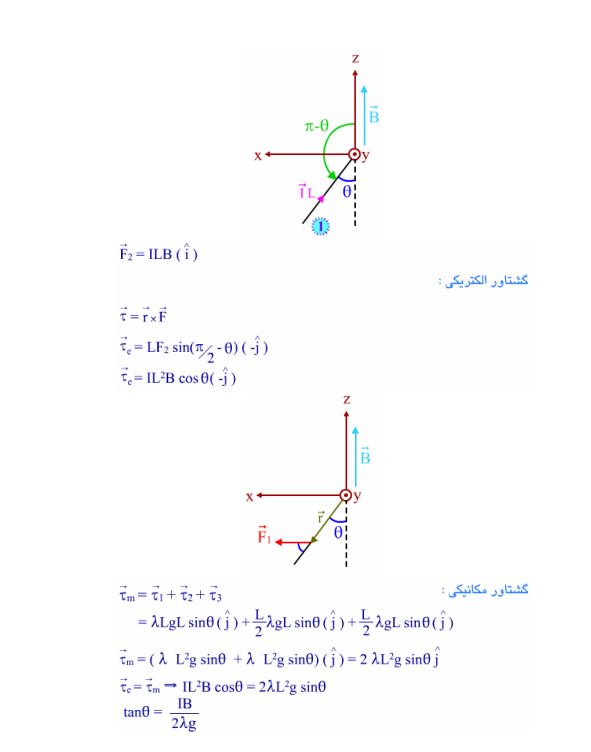 z
B⃗
π-θ
x
y
I⃗L
θ
1
F⃗₂ = ILB ( î )
گشتاور الکتریکی :
τ⃗ = r⃗ × F⃗
τ⃗ₑ = LF₂ sin(π/2 - θ) ( -ĵ )
τ⃗ₑ = IL²B cosθ( -ĵ )
z
B⃗
x
y
r⃗
θ
F⃗₁
گشتاور مکانیکی :
τ⃗ₘ = τ⃗₁ + τ⃗₂ + τ⃗₃
= λLgL sinθ ( ĵ ) + L/2 λgL sinθ ( ĵ ) + L/2 λgL sinθ ( ĵ )
τ⃗ₘ = ( λ L²g sinθ + λ L²g sinθ) ( ĵ ) = 2 λL²g sinθ ĵ
τ⃗ₑ = τ⃗ₘ ⇒ IL²B cosθ = 2λL²g sinθ
tanθ = IB/2λg